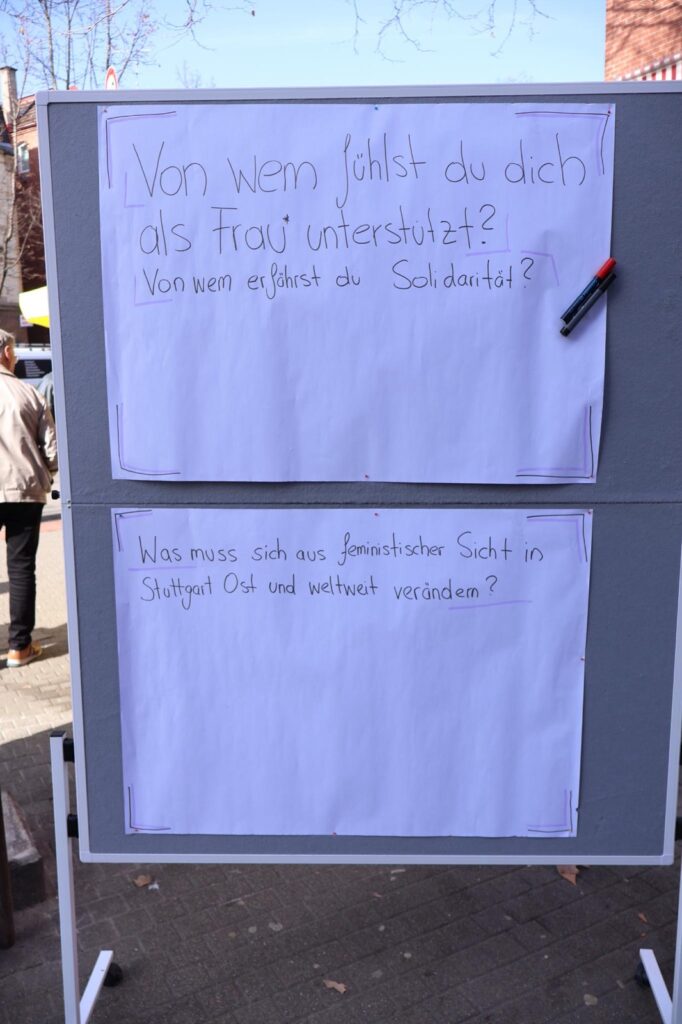 Von wem fühlst du dich
als Frau* unterstützt?
Von wem erfährst du Solidarität?
Was muss sich aus feministischer Sicht in
Stuttgart Ost und weltweit verändern?